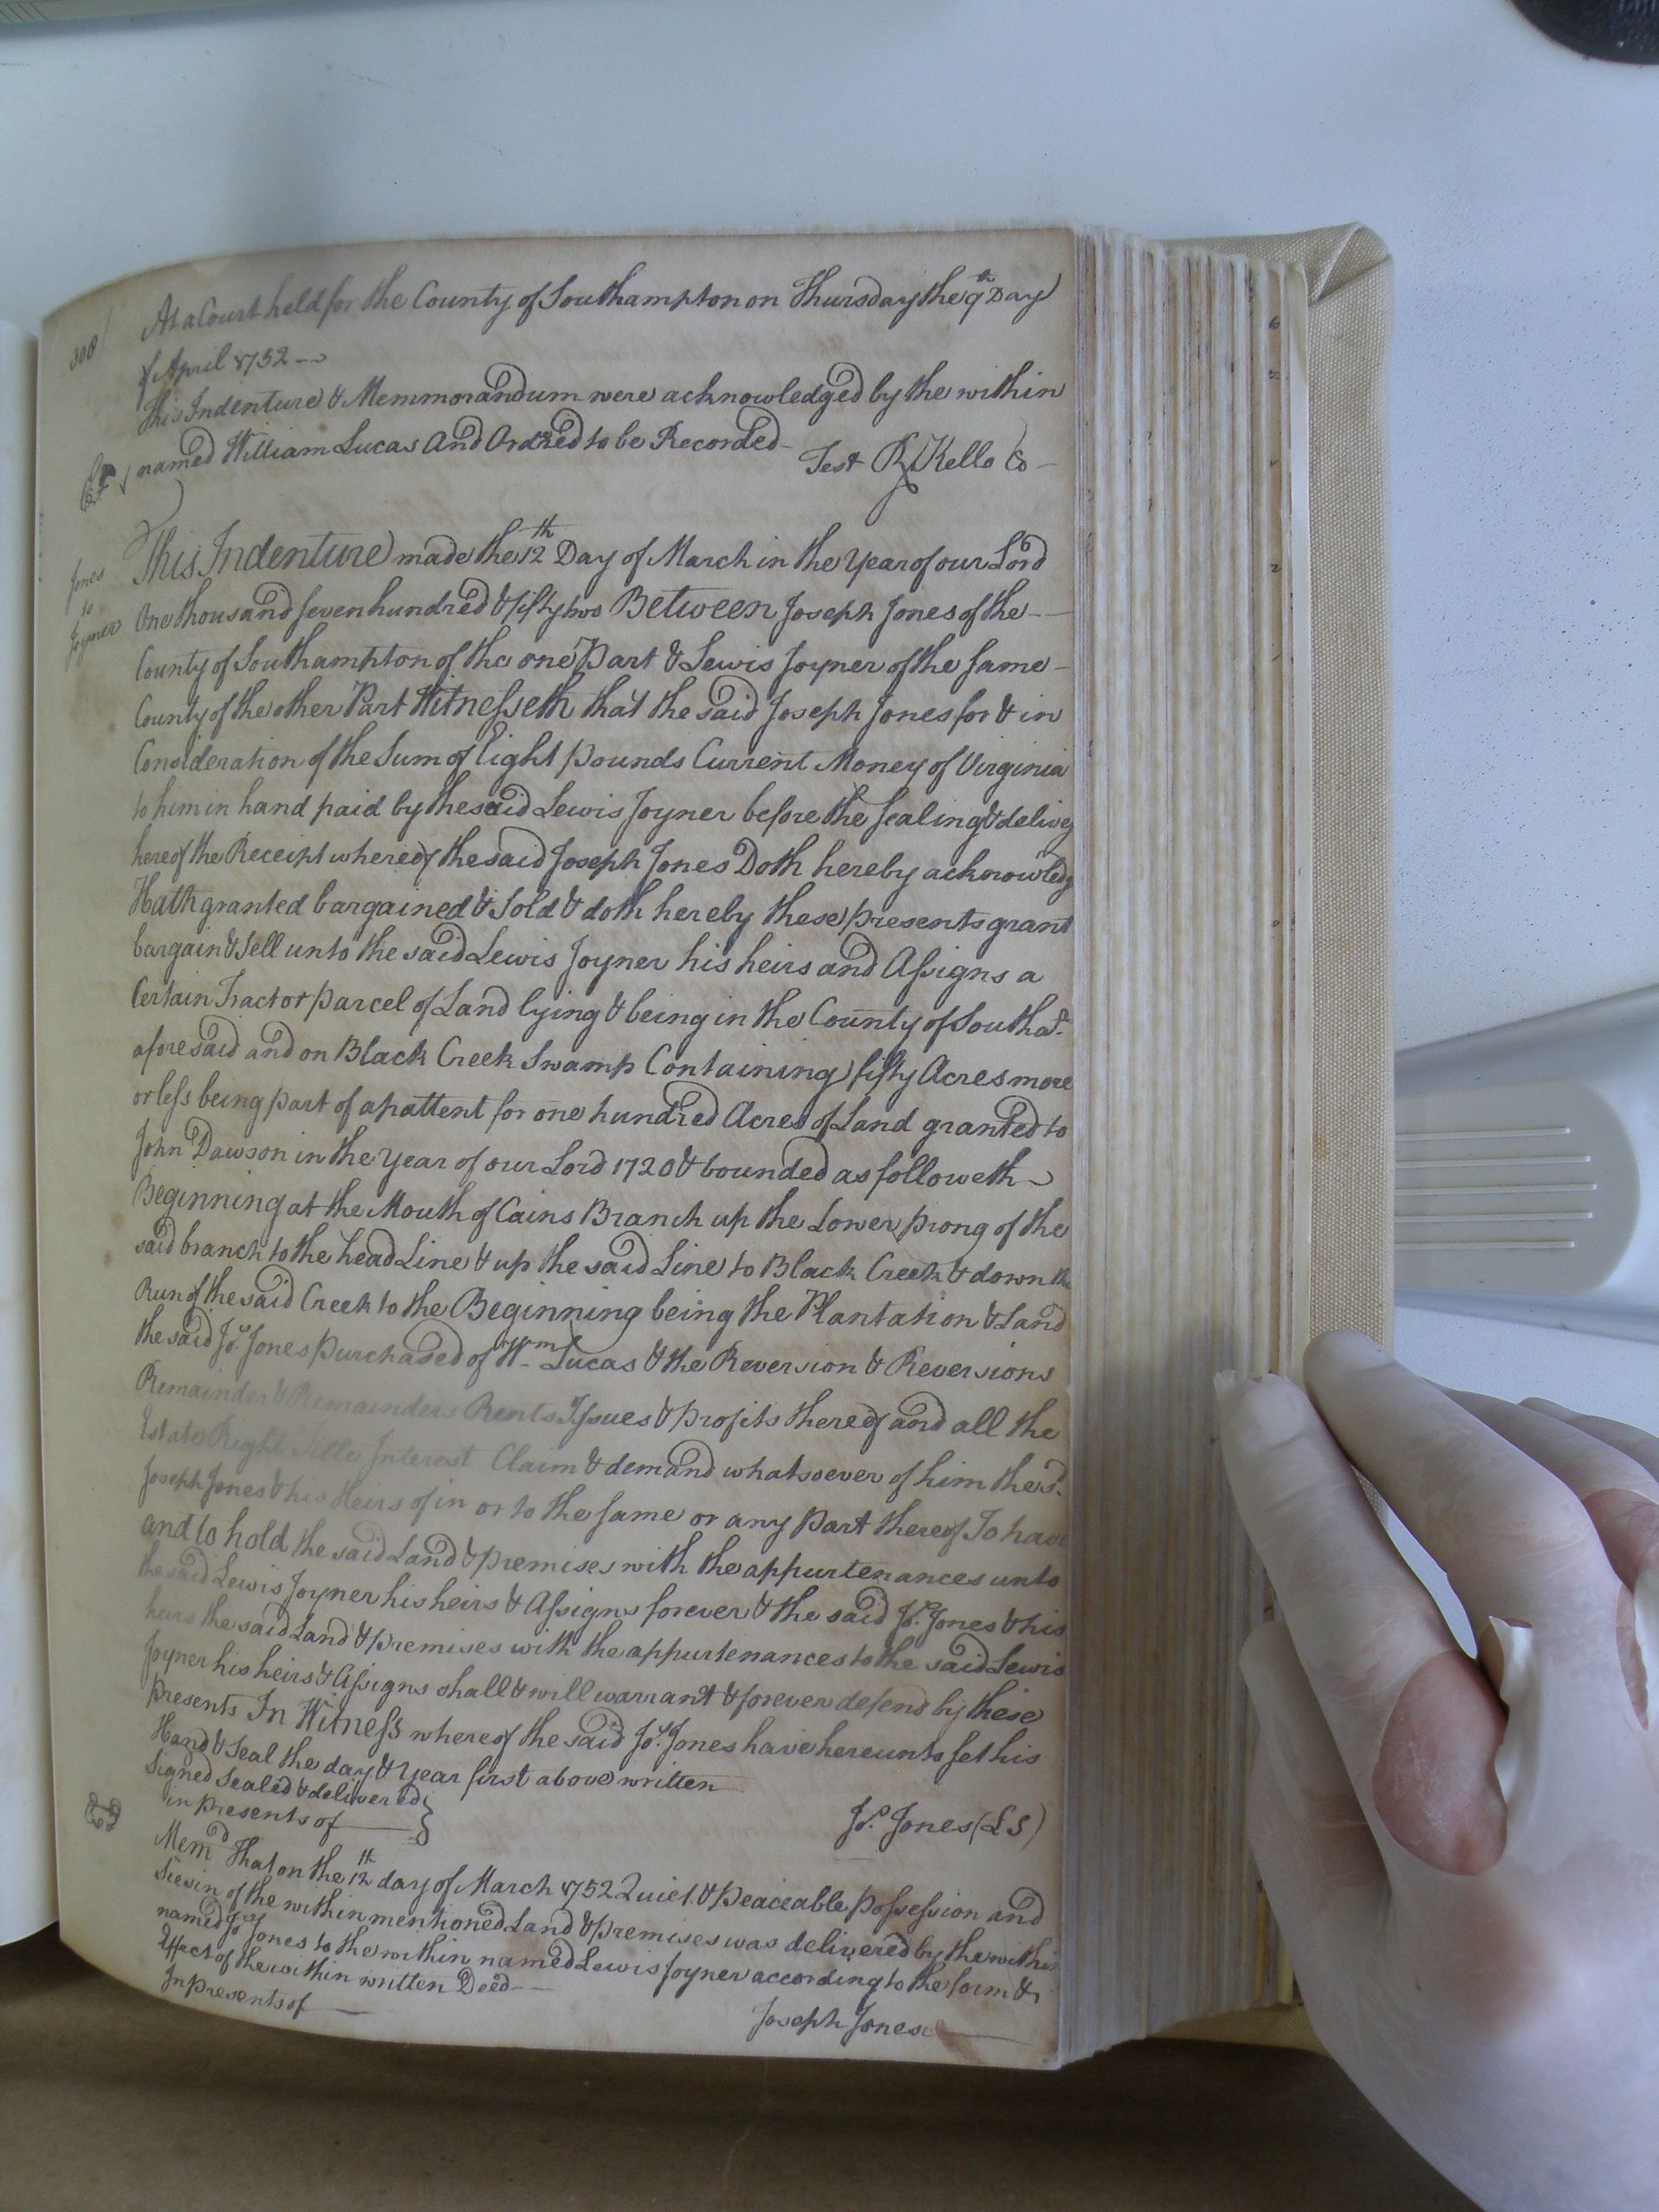 308
At a Court held for the County of Southampton on Thursday the 9th Day
of April 1752 --
This Indenture & Memmorandum were acknowledged by the within
named William Lucas And Ordred to be Recorded
Test R Kello
Jones
to
Joyner
This Indenture made the 12th Day of March in the Year of our Lord
One thousand seven hundred & fifty two Between Joseph Jones of the
County of Southampton of the one Part & Lewis Joyner of the same
County of the other Part Witnesseth that the said Joseph Jones for & in
Consideration of the Sum of Eight pounds Current Money of Virginia
to him in hand paid by the said Lewis Joyner before the sealing & delivey
hereof the Receipt whereof the said Joseph Jones Doth hereby acknowledg
Hath granted bargained & Sold & doth hereby these presents grant
bargain & Sell unto the said Lewis Joyner his heirs and Assigns a
Certain Tract or parcel of Land lying & being in the County of Southat.
aforesaid and on Black Creek Swamp Containing fifty Acres more
or less being part of a pattent for one hundred Acres of Land granted to
John Dawson in the Year of our Lord 1720 & bounded as followeth
Beginning at the Mouth of Cains Branch up the Lower prong of the
said branch to the head Line & up the said Line to Black Creek & down the
Run of the said Creek to the Beginning being the Plantation & Land
the said Jos. Jones purchased of Wm Lucas & the Reversion & Reversions
Remainder & Remainders Rents Issues & profits thereof and all the
Estate Right Title Interest Claim & demand whatsoever of him the sd.
Joseph Jones & his Heirs of in or to the same or any part thereof To have
and to hold the said Land & premises with the appurtenances unto
the said Lewis Joyner his heirs & Assigns forever & the said Jos. Jones & his
heirs the said Land & premises with the appurtenances to the said Lewis
Joyner his heirs & Assigns shall & will warrant & forever defend by these
presents In Witness whereof the said Jos. Jones have hereunto set his
Hand & Seal the day & Year first above written
Signed Sealed & delivered
in presents of
Jos. Jones (LS)
Memd. That on the 12th day of March 1752 Quiet & peaceable possession and
Siesin of the within mentioned Land & premises was delivered by the within
named Jos. Jones to the within named Lewis Joyner according to the form &
Effect of the within written Deed --
In presents of
Joseph Jones